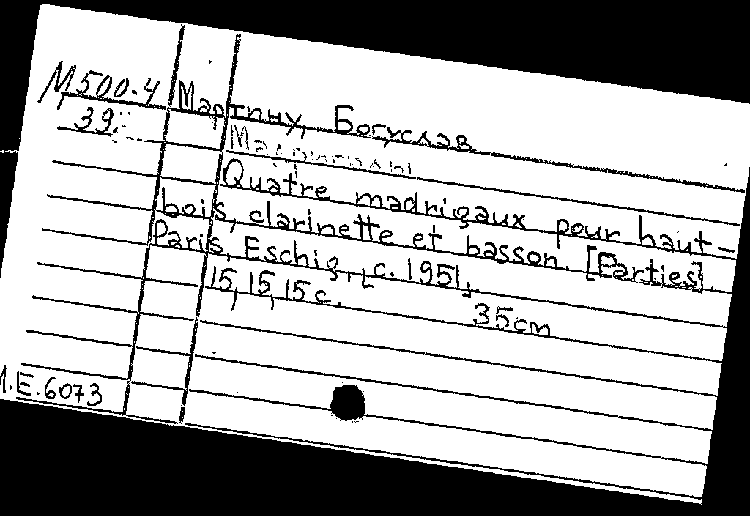 М500.4 Мартину, Богуслав
39.
Мадригалы
Quatre madrigaux pour haut-
bois, clarinette et basson. [Parties].
Paris, Eschig, [c. 1951].
15, 15, 15 c. 35cm
M.E.6073